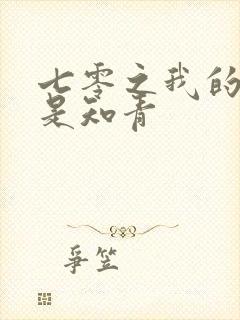 七零之我的
是知青
爭笠